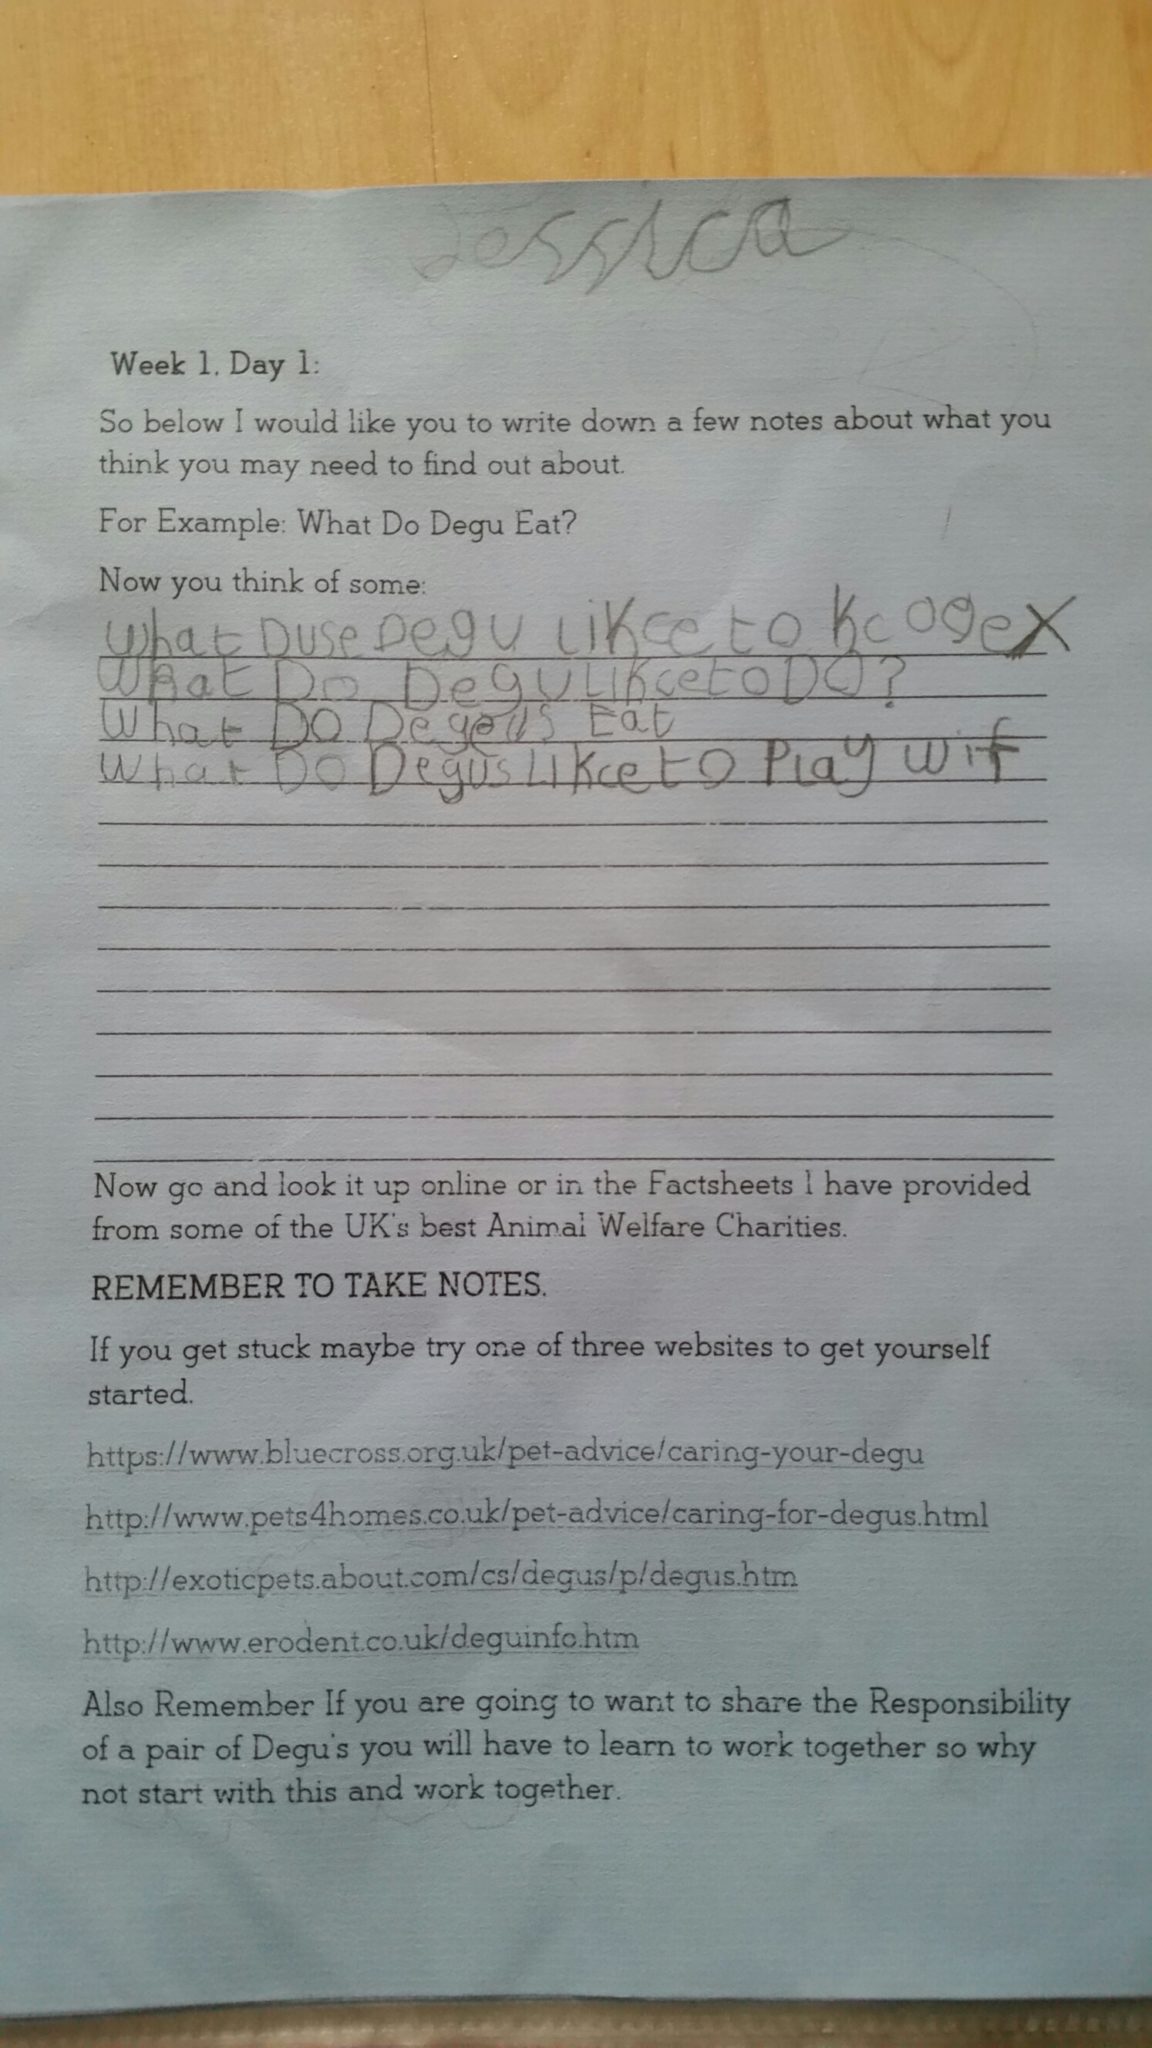 Jessica
Week 1. Day 1:
So below I would like you to write down a few notes about what you
think you may need to find out about.
For Example: What Do Degu Eat?
Now you think of some:
What Duse Degu Likce to
What Do Degu Likce to DO?
What DO Eat
What DO Degus Likce to Play wif
Now go and look it up online or in the Factsheets I have provided
from some of the UK's best Animal Welfare Charities.
REMEMBER TO TAKE NOTES.
If you get stuck maybe try one of three websites to get yourself
started.
https://www.bluecross.org.uk/pet-advice/caring-your-degu
http://www.pets4homes.co.uk/pet-advice/caring-for-degus.html
http://exoticpets.about.com/cs/degus/p/degus.htm
http://www.erodent.co.uk/deguinfo.htm
Also Remember If you are going to want to share the Responsibility
of a pair of Degu's you will have to learn to work together so why
not start with this and work together.